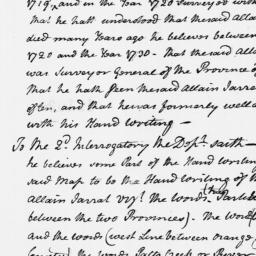 1719, and in the Year 1720 Surveyed with
that he hath understood that the said Allai
died many Years ago he believes between
1720 and the Year 1730 - that the said Alla
was Surveyor General of the Province of
that he hath Seen the said Allain Jarrat
often, and that he was formerly well a
with his Hand Writing -
To the 2d. Interrogatory the Depst. saith -
he believes some Part of the Hand Writin
said Map to be the Hand Writing of
Allain Jarrat Vizt. the Words (
between the two Provinces). the Word
and the words (West Line between Orange
the Words Creek or River